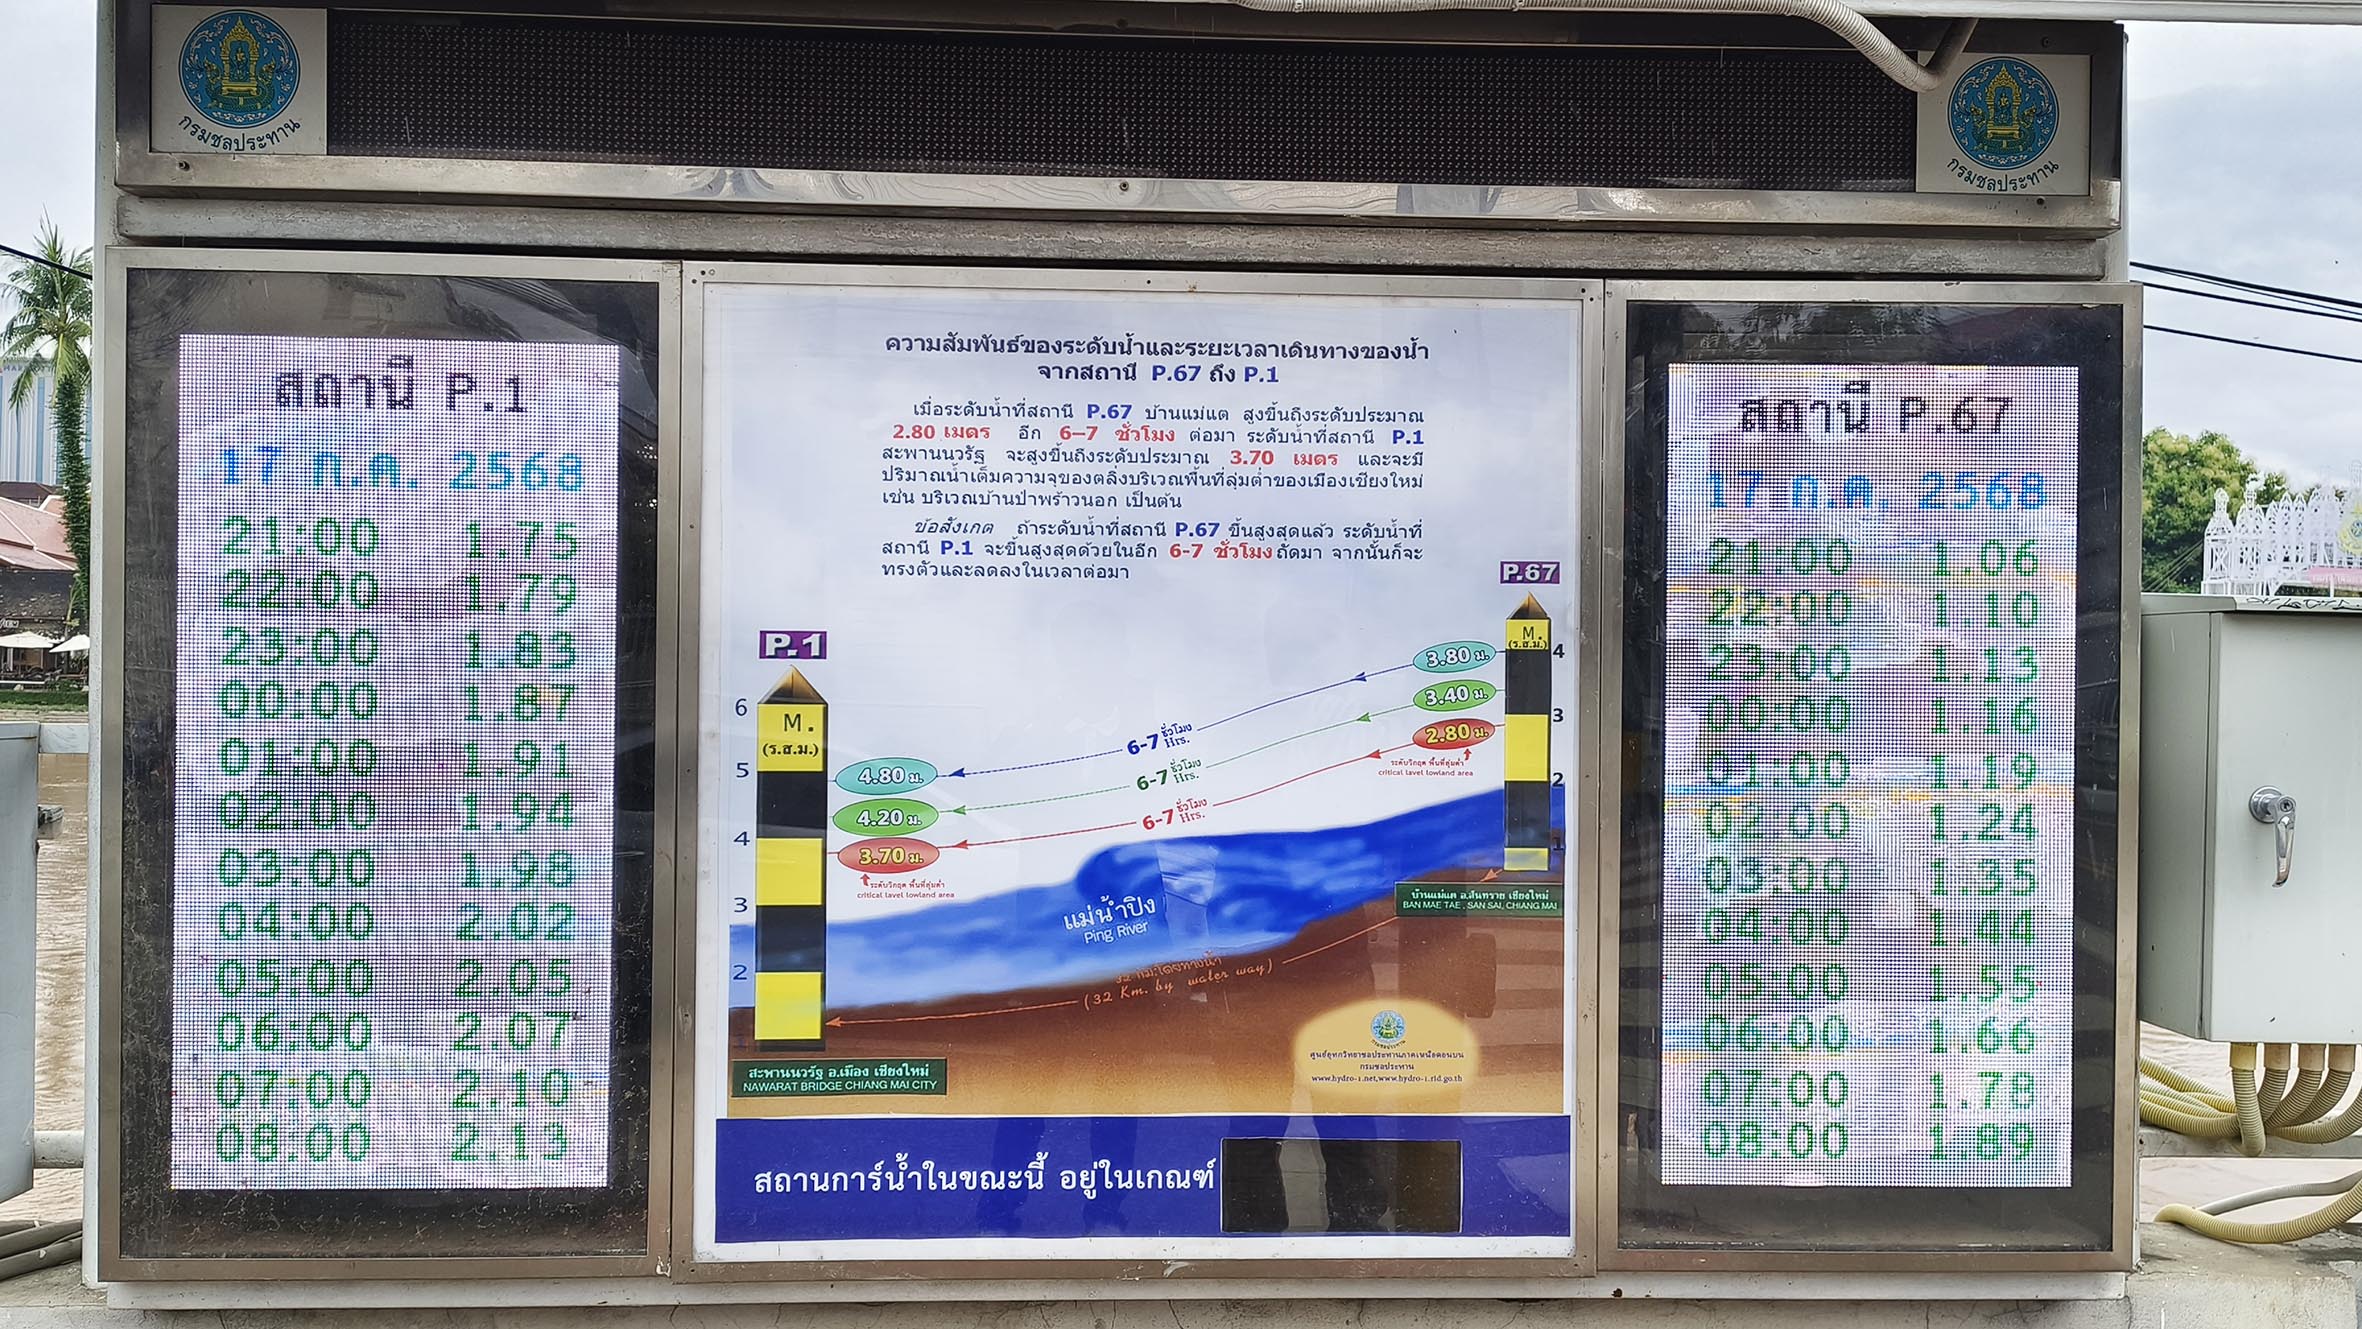 กรมชลประทาน
กรมชลประทาน
สถานี P.1
17 ก.ค. 2568
21:00 1.75
22:00 1.79
23:00 1.83
00:00 1.87
01:00 1.91
02:00 1.94
03:00 1.98
04:00 2.02
05:00 2.05
06:00 2.07
07:00 2.10
08:00 2.13
ความสัมพันธ์ของระดับน้ำและระยะเวลาเดินทางของน้ำ
จากสถานี P.67 ถึง P.1
เมื่อระดับน้ำที่สถานี P.67 บ้านแม่แต สูงขึ้นถึงระดับประมาณ
2.80 เมตร อีก 6–7 ชั่วโมง ต่อมา ระดับน้ำที่สถานี P.1
สะพานนวรัฐ จะสูงขึ้นถึงระดับประมาณ 3.70 เมตร และจะมี
ปริมาณน้ำเต็มความจุของตลิ่งบริเวณพื้นที่ลุ่มต่ำของเมืองเชียงใหม่
เช่น บริเวณบ้านป่าพร้าวนอก เป็นต้น
ข้อสังเกต ถ้าระดับน้ำที่สถานี P.67 ขึ้นสูงสุดแล้ว ระดับน้ำที่
สถานี P.1 จะขึ้นสูงสุดด้วยในอีก 6-7 ชั่วโมงถัดมา จากนั้นก็จะ
ทรงตัวและลดลงในเวลาต่อมา
P.67
M.
(ร.ส.ม.)
4
3
2
1
3.80 ม.
3.40 ม.
2.80 ม.
ระดับวิกฤต พื้นที่ลุ่มต่ำ
critical lavel lowland area
P.1
M.
(ร.ส.ม.)
6
5
4
3
2
1
6-7 ชั่วโมง Hrs.
6-7 ชั่วโมง Hrs.
6-7 ชั่วโมง Hrs.
4.80 ม.
4.20 ม.
3.70 ม.
ระดับวิกฤต พื้นที่ลุ่มต่ำ
critical lavel lowland area
แม่น้ำปิง
Ping River
บ้านแม่แต อ.สันทราย เชียงใหม่
BAN MAE TAE , SAN SAI, CHIANG MAI
32 กม.โดยทางน้ำ
(32 Km. by water way)
กรมชลประทาน
ศูนย์อุทกวิทยาชลประทานภาคเหนือตอนบน
กรมชลประทาน
www.hydro-1.net,www.hydro-1.rid.go.th
สะพานนวรัฐ อ.เมือง เชียงใหม่
NAWARAT BRIDGE CHIANG MAI CITY
สถานการ์น้ำในขณะนี้ อยู่ในเกณฑ์
สถานี P.67
17 ก.ค. 2568
21:00 1.06
22:00 1.10
23:00 1.13
00:00 1.16
01:00 1.19
02:00 1.24
03:00 1.35
04:00 1.44
05:00 1.55
06:00 1.66
07:00 1.78
08:00 1.89